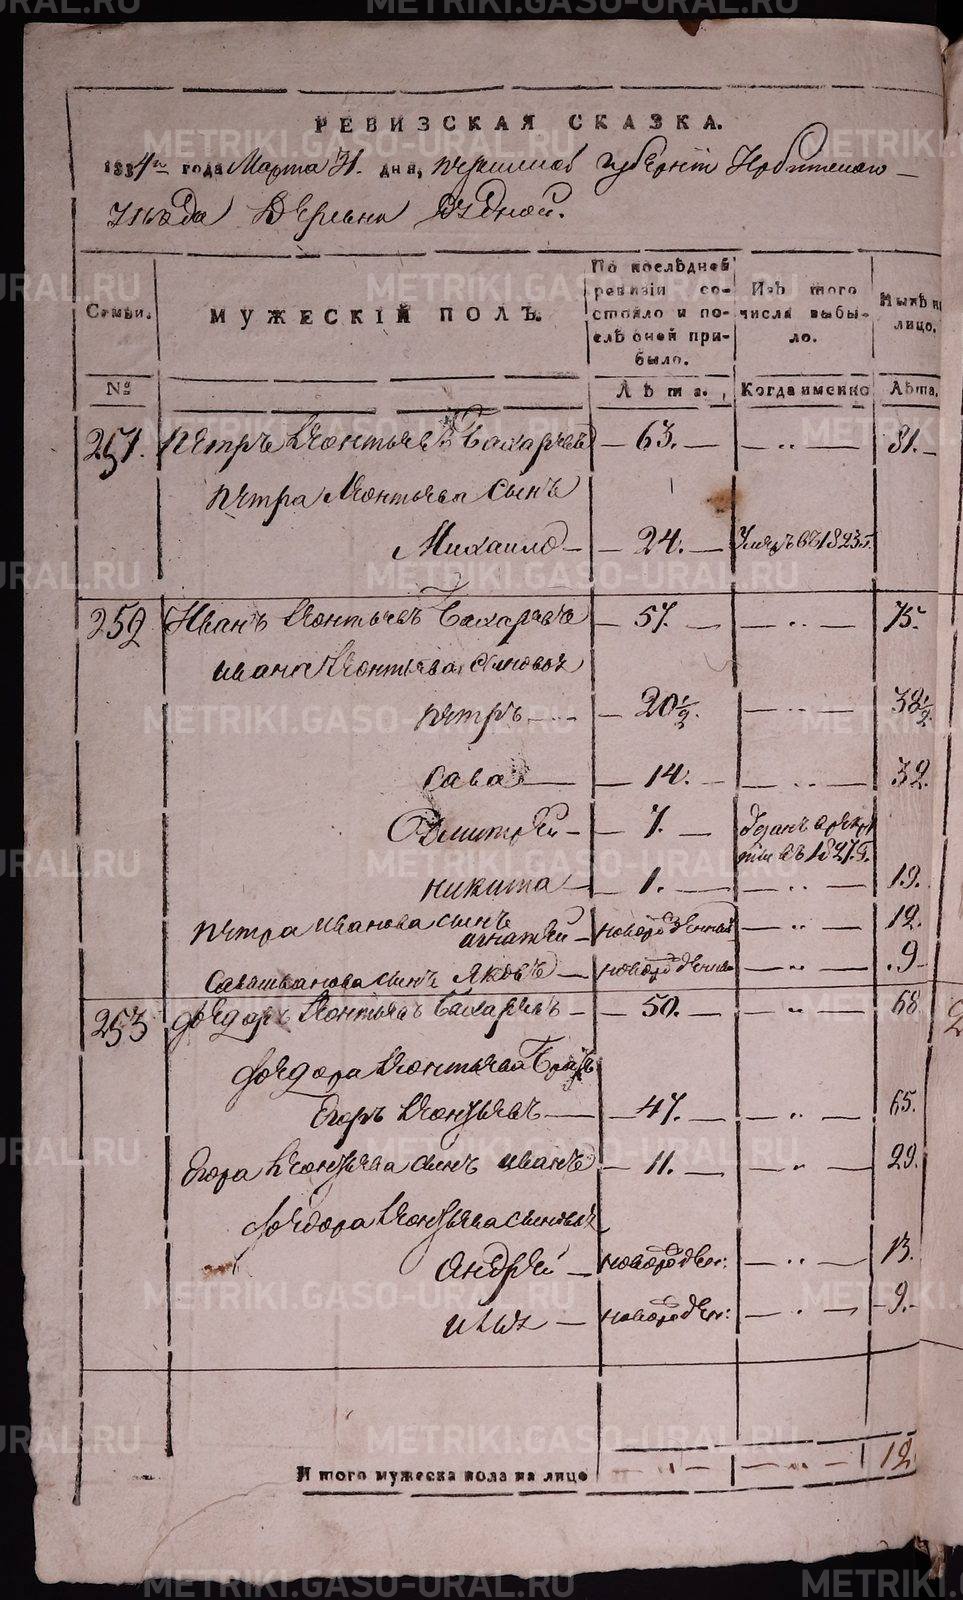 РЕВИЗСКАЯ СКАЗКА.
1834го года Марта 31. дня, пермской губернiи Ирбитскаго
уѣзда Деревни
Семьи. МУЖЕСКІЙ ПОЛЪ. По послѣдней ревизіи состояло и послѣ оной прибыло. Изъ того числа выбыло. Нынѣ на лицо.
№ Лѣта. Когда именно Лѣта.
251. Петръ Леонтьевъ Бахаревъ — 63. — „ — 81. —
Петра Леонтьева сынъ
Михаило — 24. — Умеръ въ 1823 г.
252 Иванъ Леонтьевъ Бахаревъ — 57. — „ — 75.
Ивана Леонтьева сыновья
петръ — 20½. — „ — 38½.
Сава — 14. — „ — 32.
Дмитрей — 7. — отданъ в рекруты въ 1827. г.
никита — 1. — „ — 19.
петра иванова сынъ
игнатей — новорожденной — „ — 12.
Савы иванова сынъ Яковъ — новорожден — „ — 9
253 федоръ Леонтьевъ Бахаревъ — 50. — „ — 68
федора Леонтьева Братъ
Егоръ Леонтьевъ — 47. — „ — 65.
Егора Леонтьева сынъ иванъ — 11. — „ — 29.
федора Леонтьева сыновья
андрей — новорожден: — „ — 13.
илья — новорожден: — „ — 9. —
И того мужеска пола на лицо — „ — — „ — 12
METRIKI.GASO-URAL.RU